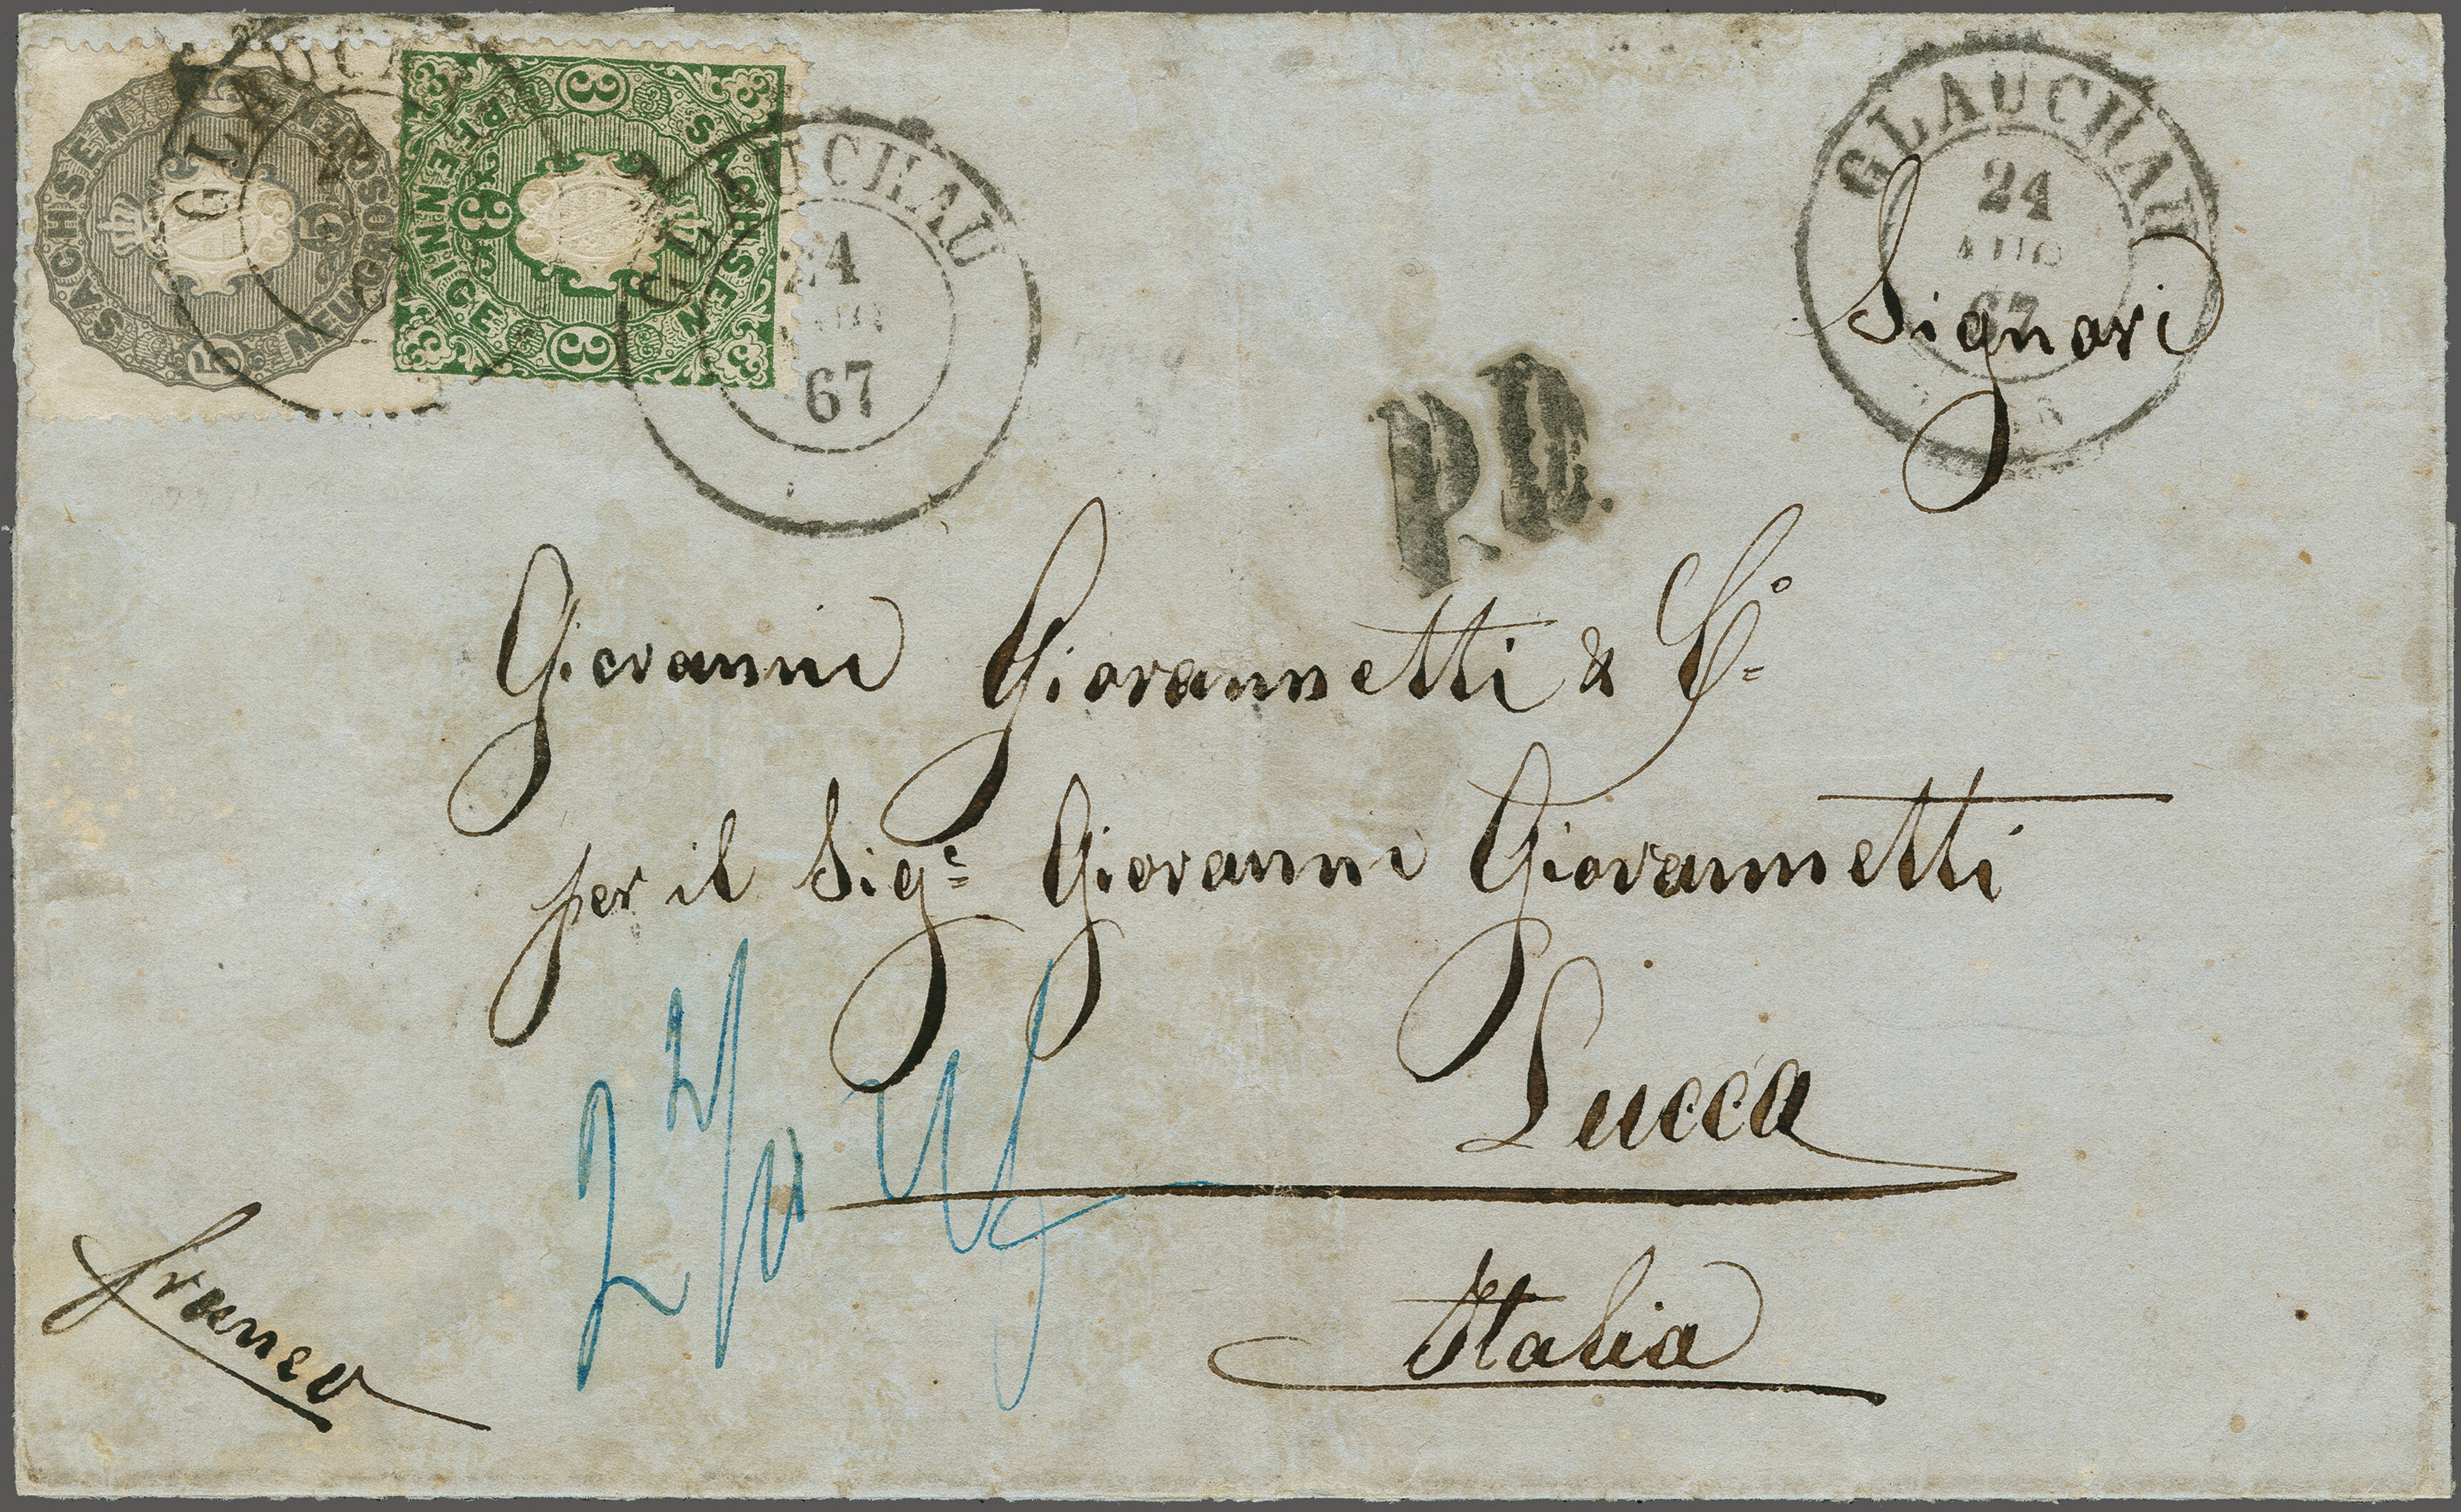 SACHSEN
5 5 5
NEUGROSCHEN
SACHSEN
3 3 3
PFENNIGE
GLAUCHAU
GLAUCHAU
24
67
GLAUCHAU
24
AUG
67
P.D.
Signori
Giovanni Giovannetti & Co.
per il Sigr Giovanni Giovannetti
Lucca
Italia
franco